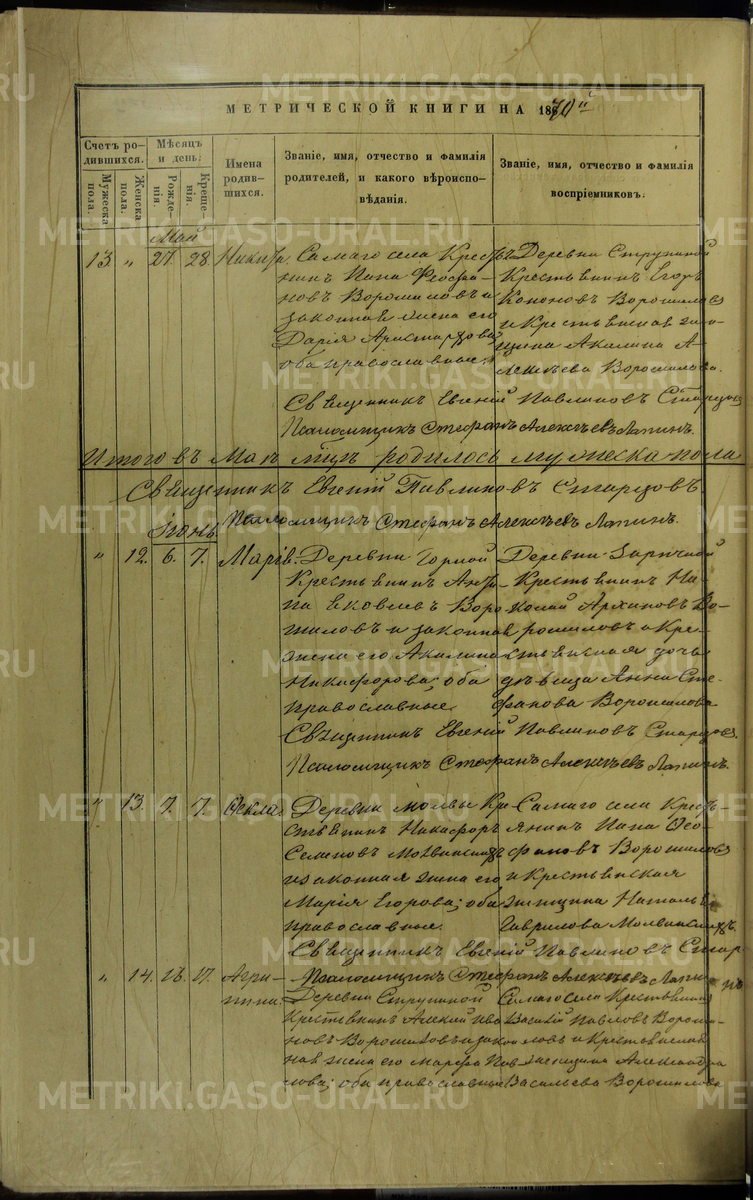 МЕТРИЧЕСКОЙ КНИГИ НА 1870й
Счетъ родившихся.
Мужеска пола.
Женска пола.
Мѣсяцъ и день:
Рожденія.
Крещенія.
Имена родившихся.
Званіе, имя, отчество и фамилія родителей, и какого вѣроисповѣданія.
Званіе, имя, отчество и фамилія воспріемниковъ.
Май
13. " 27. 28. Никита.
Самаго села Кресть
янинъ
законная жена его
Дарія Аристархова
оба православные.
Деревни Струниной
Крестьянинъ Егоръ
Кононовъ Ворошиловъ
и Крестьянская жен
щина Акилина А
лексѣева Ворошилова.
Священникъ Евгеній Павлиновъ Старцовъ
Псаломщикъ Стефанъ Алексѣевъ Лапинъ.
Итого въ Маѣ мцѣ родилось мужеска пола
Священникъ Евгеній Павлиновъ Старцовъ.
Псаломщикъ Стефанъ Алексѣевъ Лапинъ.
Іюнь.
" 12. 6. 7. Марія.
Деревни Горной
Крестьянинъ Анти
па Яковлевъ Воро
шиловъ и законная
жена его Акилина
Никифорова; оба
православные.
Деревни Заречной
Крестьянинъ Ни
колай Архиповъ Во
рошиловъ и Кре
стьянская дочь
дѣвица Анна Сте
фанова Ворошилова
Священникъ Евгеній Павлиновъ Старцовъ.
Псаломщикъ Стефанъ Алексѣевъ Лапинъ.
" 13. 7. 7. Ѳекла.
Деревни Молвы Кре
стьянинъ Никифоръ
Семеновъ Молвинскихъ
и законная жена его
Марія Егорова; оба
православные.
Самаго села Кресть
янинъ
Ворошиловъ
и Крестьянская
женщина Наталья
Гаврилова Молвинскихъ.
Священникъ Евгеній Павлиновъ Стар
Псаломщикъ Стефанъ Алексѣевъ Лапинъ
" 14. 16. 17. Агрипина.
Деревни Струниной
Крестьянинъ Алексѣй Ива
новъ Ворошиловъ и закон
ная жена его Марѳа Пав
лова; оба православные
Самаго села Крестьянинъ
Василій Павловъ Вороши
ловъ и Крестьянская
женщина Александра
Васильева Ворошилова
METRIKI.GASO-URAL.RU